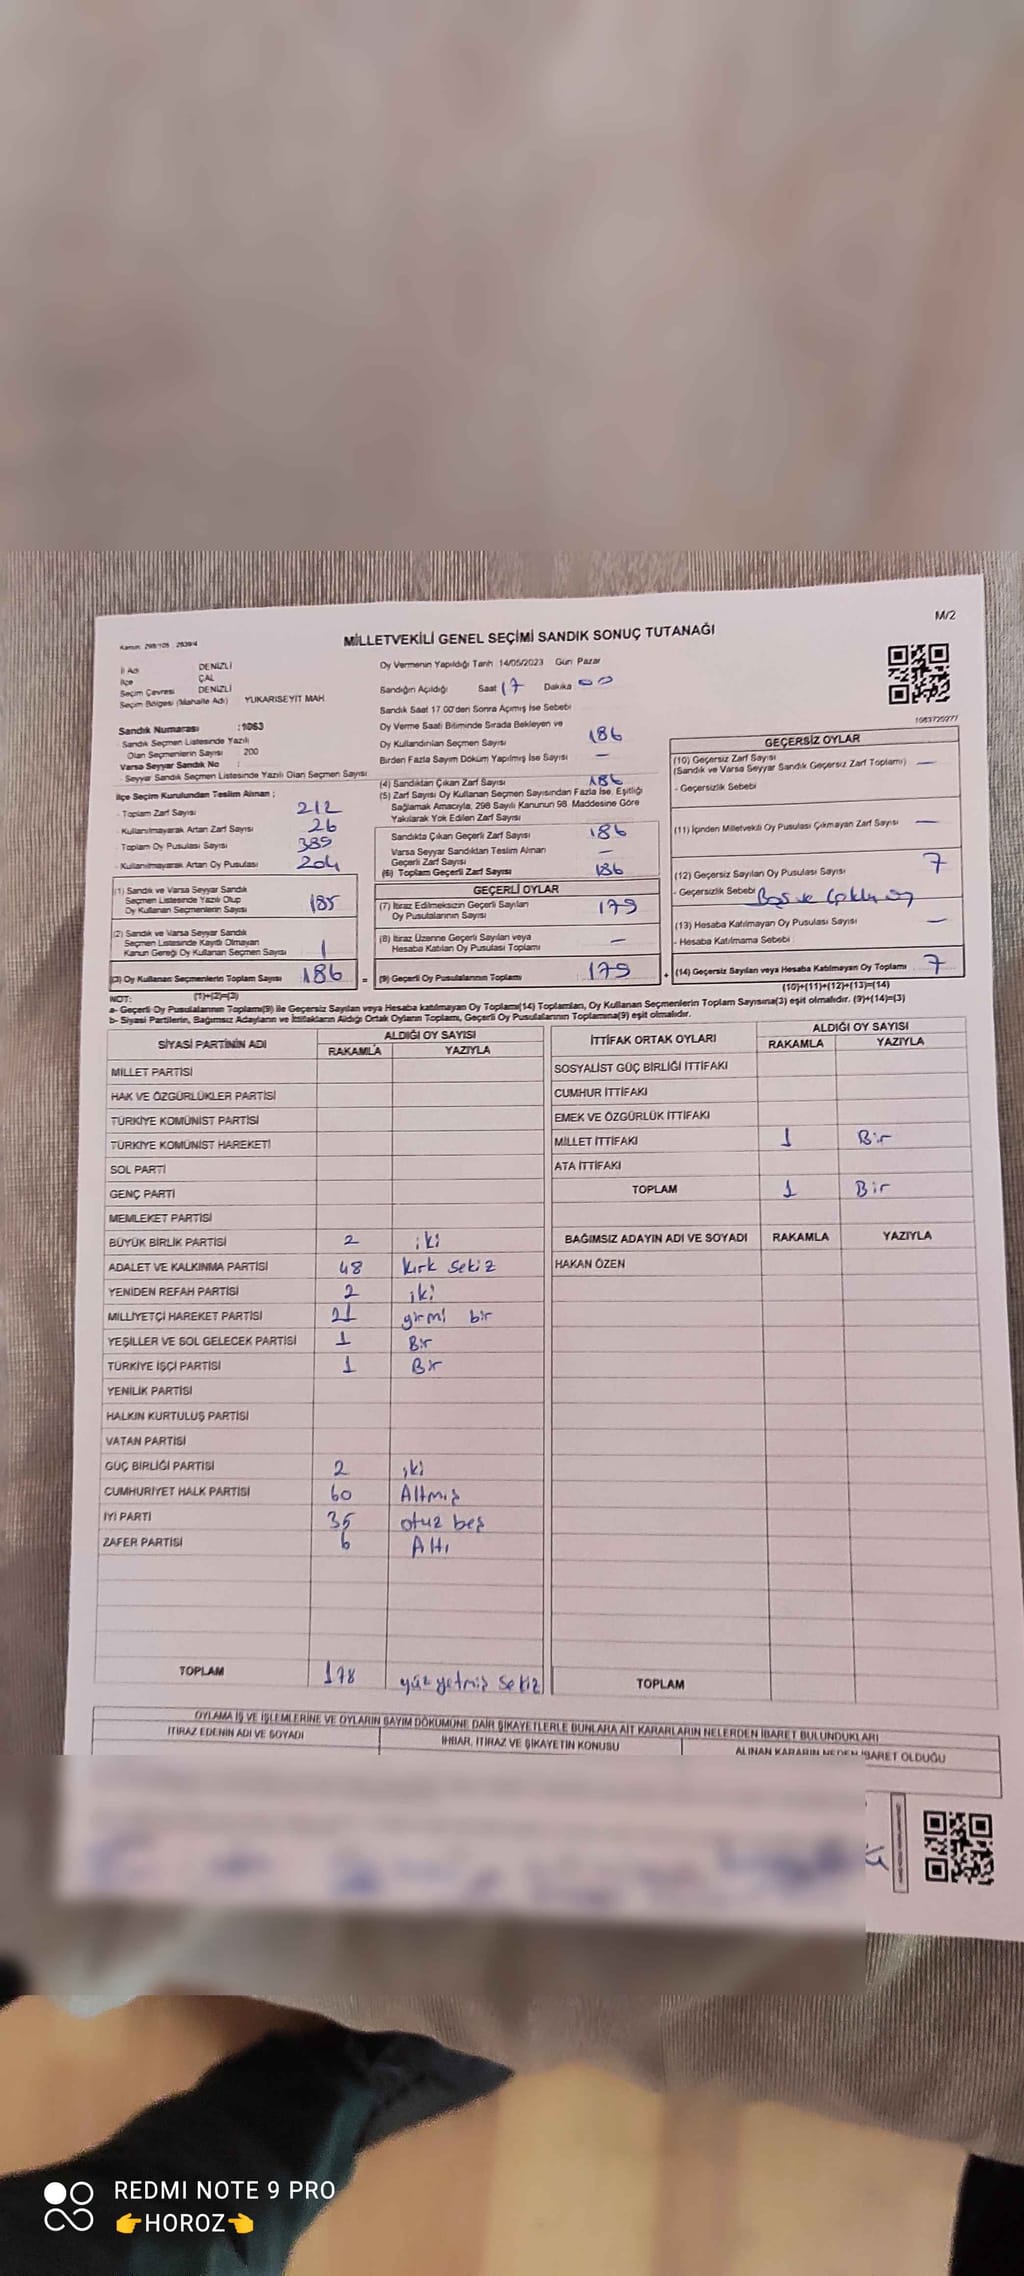 M/2
Kanun: 298/105 2839/4
MİLLETVEKİLİ GENEL SEÇİMİ SANDIK SONUÇ TUTANAĞI
İl Adı DENİZLİ
İlçe ÇAL
Seçim Çevresi DENİZLİ
Seçim Bölgesi (Mahalle Adı) YUKARISEYİT MAH.
Oy Vermenin Yapıldığı Tarih 14/05/2023 Gün Pazar
Sandığın Açıldığı Saat 17 Dakika 00
Sandık Saat 17.00'den Sonra Açımış İse Sebebi
1063720277
Sandık Numarası : 1063
- Sandık Seçmen Listesinde Yazılı
Olan Seçmenlerin Sayısı 200
Varsa Seyyar Sandık No :
- Seyyar Sandık Seçmen Listesinde Yazılı Olan Seçmen Sayısı
İlçe Seçim Kurulundan Teslim Alınan ;
- Toplam Zarf Sayısı 212
- Kullanılmayarak Artan Zarf Sayısı 26
- Toplam Oy Pusulası Sayısı 389
- Kullanılmayarak Artan Oy Pusulası 204
(1) Sandık ve Varsa Seyyar Sandık
Seçmen Listesinde Yazılı Olup
Oy Kullanan Seçmenlerin Sayısı 185
(2) Sandık ve Varsa Seyyar Sandık
Seçmen Listesinde Kayıtlı Olmayan
Kanun Gereği Oy Kullanan Seçmen Sayısı 1
(3) Oy Kullanan Seçmenlerin Toplam Sayısı 186 =
(1)+(2)=(3)
Oy Verme Saati Bitiminde Sırada Bekleyen ve
Oy Kullandırılan Seçmen Sayısı 186
Birden Fazla Sayım Döküm Yapılmış İse Sayısı —
(4) Sandıktan Çıkan Zarf Sayısı 186
(5) Zarf Sayısı Oy Kullanan Seçmen Sayısından Fazla İse, Eşitliği
Sağlamak Amacıyla, 298 Sayılı Kanunun 98. Maddesine Göre
Yakılarak Yok Edilen Zarf Sayısı
Sandıkta Çıkan Geçerli Zarf Sayısı 186
Varsa Seyyar Sandıktan Teslim Alınan
Geçerli Zarf Sayısı —
(6) Toplam Geçerli Zarf Sayısı 186
GEÇERLİ OYLAR
(7) İtiraz Edilmeksizin Geçerli Sayılan
Oy Pusulalarının Sayısı 179
(8) İtiraz Üzerine Geçerli Sayılan veya
Hesaba Katılan Oy Pusulası Toplamı —
(9) Geçerli Oy Pusulalarının Toplamı 179 +
GEÇERSİZ OYLAR
(10) Geçersiz Zarf Sayısı
(Sandık ve Varsa Seyyar Sandık Geçersiz Zarf Toplamı) —
- Geçersizlik Sebebi
(11) İçinden Milletvekili Oy Pusulası Çıkmayan Zarf Sayısı —
(12) Geçersiz Sayılan Oy Pusulası Sayısı 7
- Geçersizlik Sebebi Boş ve
(13) Hesaba Katılmayan Oy Pusulası Sayısı —
- Hesaba Katılmama Sebebi
(14) Geçersiz Sayılan veya Hesaba Katılmayan Oy Toplamı 7
(10)+(11)+(12)+(13)=(14)
NOT:
a- Geçerli Oy Pusulalarının Toplamı(9) ile Geçersiz Sayılan veya Hesaba katılmayan Oy Toplamı(14) Toplamları, Oy Kullanan Seçmenlerin Toplam Sayısına(3) eşit olmalıdır. (9)+(14)=(3)
b- Siyasi Partilerin, Bağımsız Adayların ve İttifakların Aldığı Ortak Oyların Toplamı, Geçerli Oy Pusulalarının Toplamına(9) eşit olmalıdır.
SİYASİ PARTİNİN ADI ALDIĞI OY SAYISI
RAKAMLA YAZIYLA
MİLLET PARTİSİ
HAK VE ÖZGÜRLÜKLER PARTİSİ
TÜRKİYE KOMÜNİST PARTİSİ
TÜRKİYE KOMÜNİST HAREKETİ
SOL PARTİ
GENÇ PARTİ
MEMLEKET PARTİSİ
BÜYÜK BİRLİK PARTİSİ 2 iki
ADALET VE KALKINMA PARTİSİ 48 kırk sekiz
YENİDEN REFAH PARTİSİ 2 iki
MİLLİYETÇİ HAREKET PARTİSİ 21 yirmi bir
YEŞİLLER VE SOL GELECEK PARTİSİ 1 Bir
TÜRKİYE İŞÇİ PARTİSİ 1 Bir
YENİLİK PARTİSİ
HALKIN KURTULUŞ PARTİSİ
VATAN PARTİSİ
GÜÇ BİRLİĞİ PARTİSİ 2 iki
CUMHURİYET HALK PARTİSİ 60 Altmış
İYİ PARTİ 35 otuz beş
ZAFER PARTİSİ 6 Altı
TOPLAM 178 yüz yetmiş sekiz
İTTİFAK ORTAK OYLARI ALDIĞI OY SAYISI
RAKAMLA YAZIYLA
SOSYALİST GÜÇ BİRLİĞİ İTTİFAKI
CUMHUR İTTİFAKI
EMEK VE ÖZGÜRLÜK İTTİFAKI
MİLLET İTTİFAKI 1 Bir
ATA İTTİFAKI
TOPLAM 1 Bir
BAĞIMSIZ ADAYIN ADI VE SOYADI RAKAMLA YAZIYLA
HAKAN ÖZEN
TOPLAM
OYLAMA İŞ VE İŞLEMLERİNE VE OYLARIN SAYIM DÖKÜMÜNE DAİR ŞİKAYETLERLE BUNLARA AİT KARARLARIN NELERDEN İBARET BULUNDUKLARI
İTİRAZ EDENİN ADI VE SOYADI İHBAR, İTİRAZ VE ŞİKAYETİN KONUSU ALINAN KARARIN NEDEN İBARET OLDUĞU
REDMI NOTE 9 PRO
👉HOROZ👈